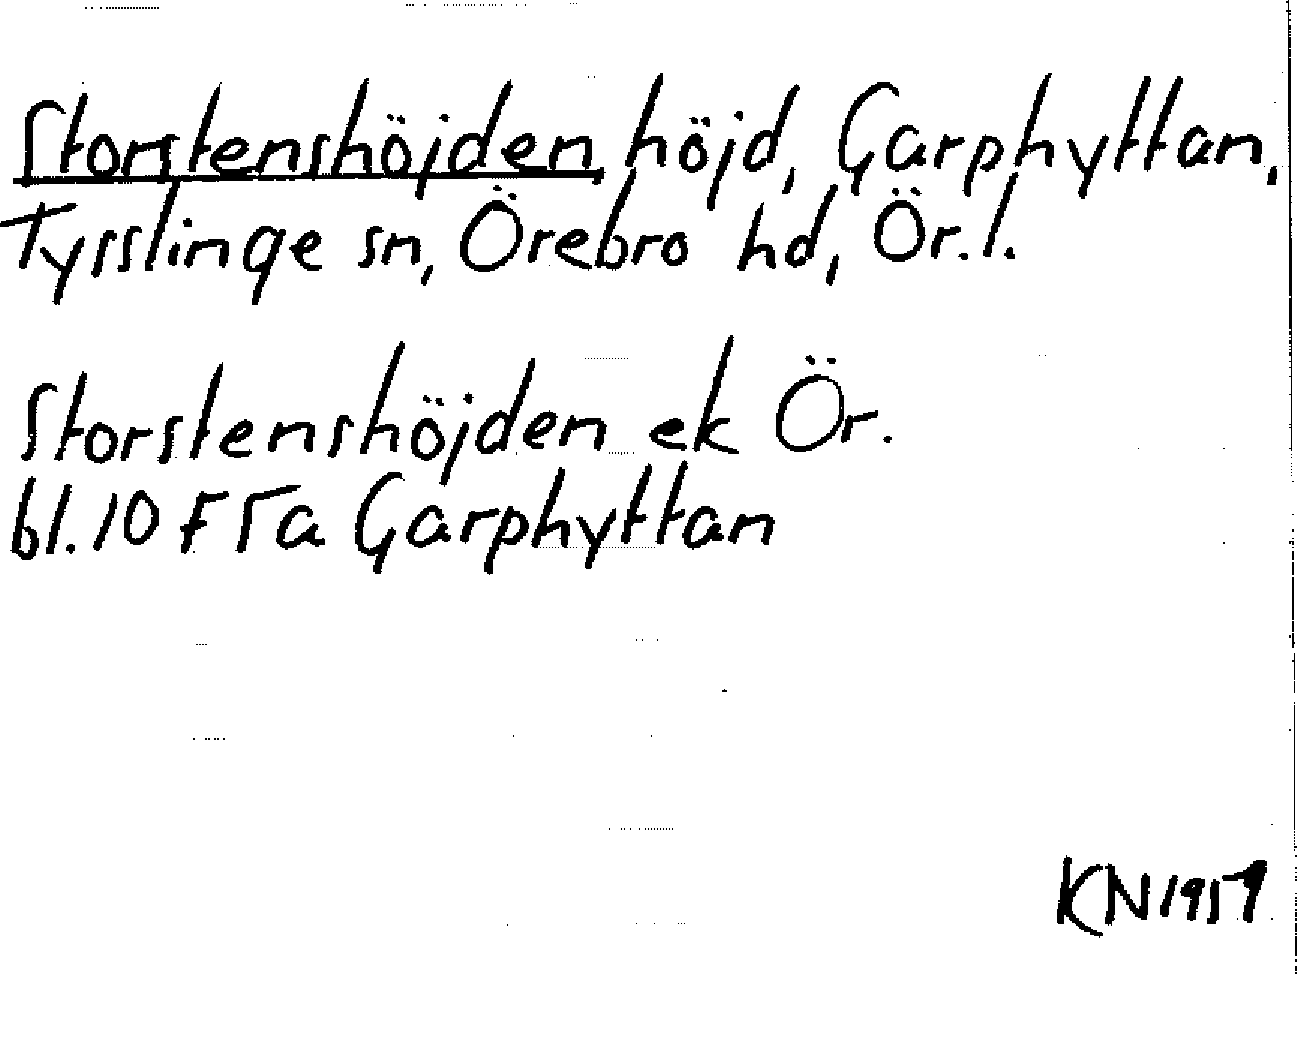 Storstenshöjden höjd, Garphyttan,
Tysslinge sn, Örebro hd, Ör.l.
Storstenshöjden ek Ör.
bl. 10 F 5a Garphyttan
KN 1957